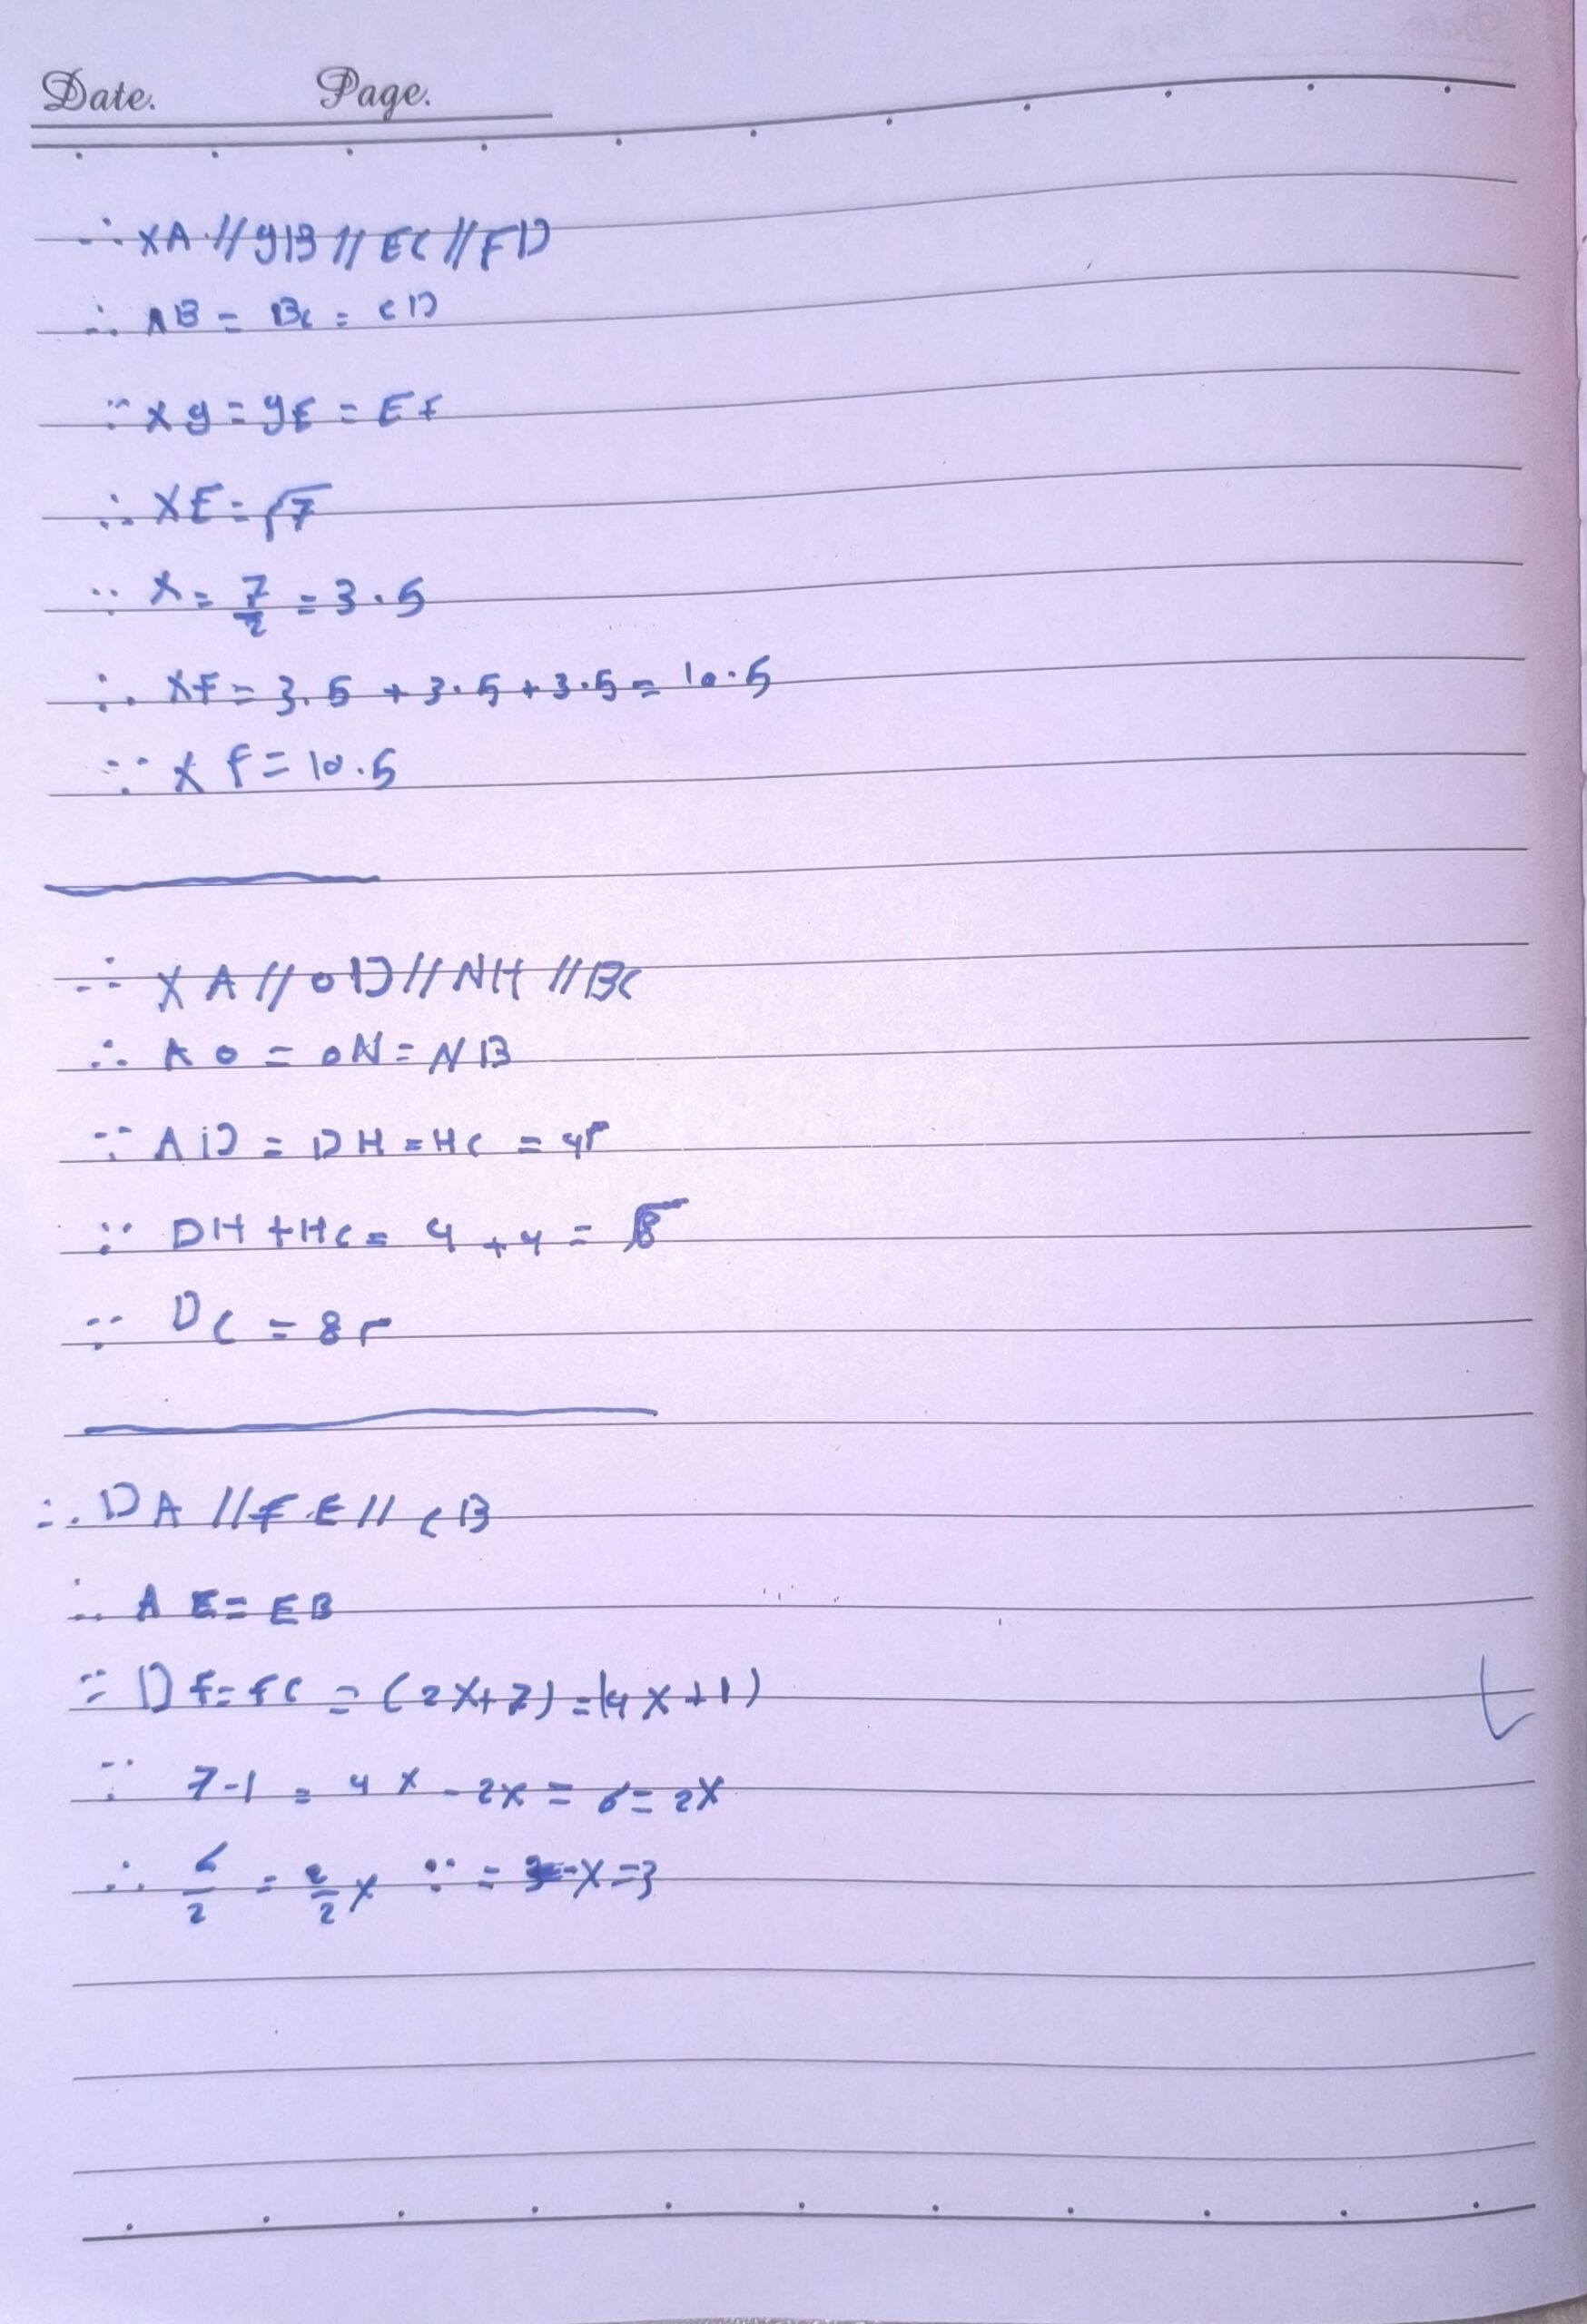 Date. Page.
∴ XA // yB // EC // FD
∴ AB = BC = CD
∵ Xy = yE = EF
∴ XE = √7
∵ X = 7/2 = 3.5
∴ XF = 3.5 + 3.5 + 3.5 = 10.5
∵ XF = 10.5
∴ XA // OD // NH // BC
∴ AO = ON = NB
∵ AD = DH = HC = 4
∵ DH + HC = 4 + 4 = 8
∵ DC = 8
∴ DA // FE // CB
∴ AE = EB
∵ DF = FC = (2X+7) = (4X+1)
∵ 7-1 = 4X - 2X = 6 = 2X
∴ 6/2 = 2/2 X ∵ = X = 3